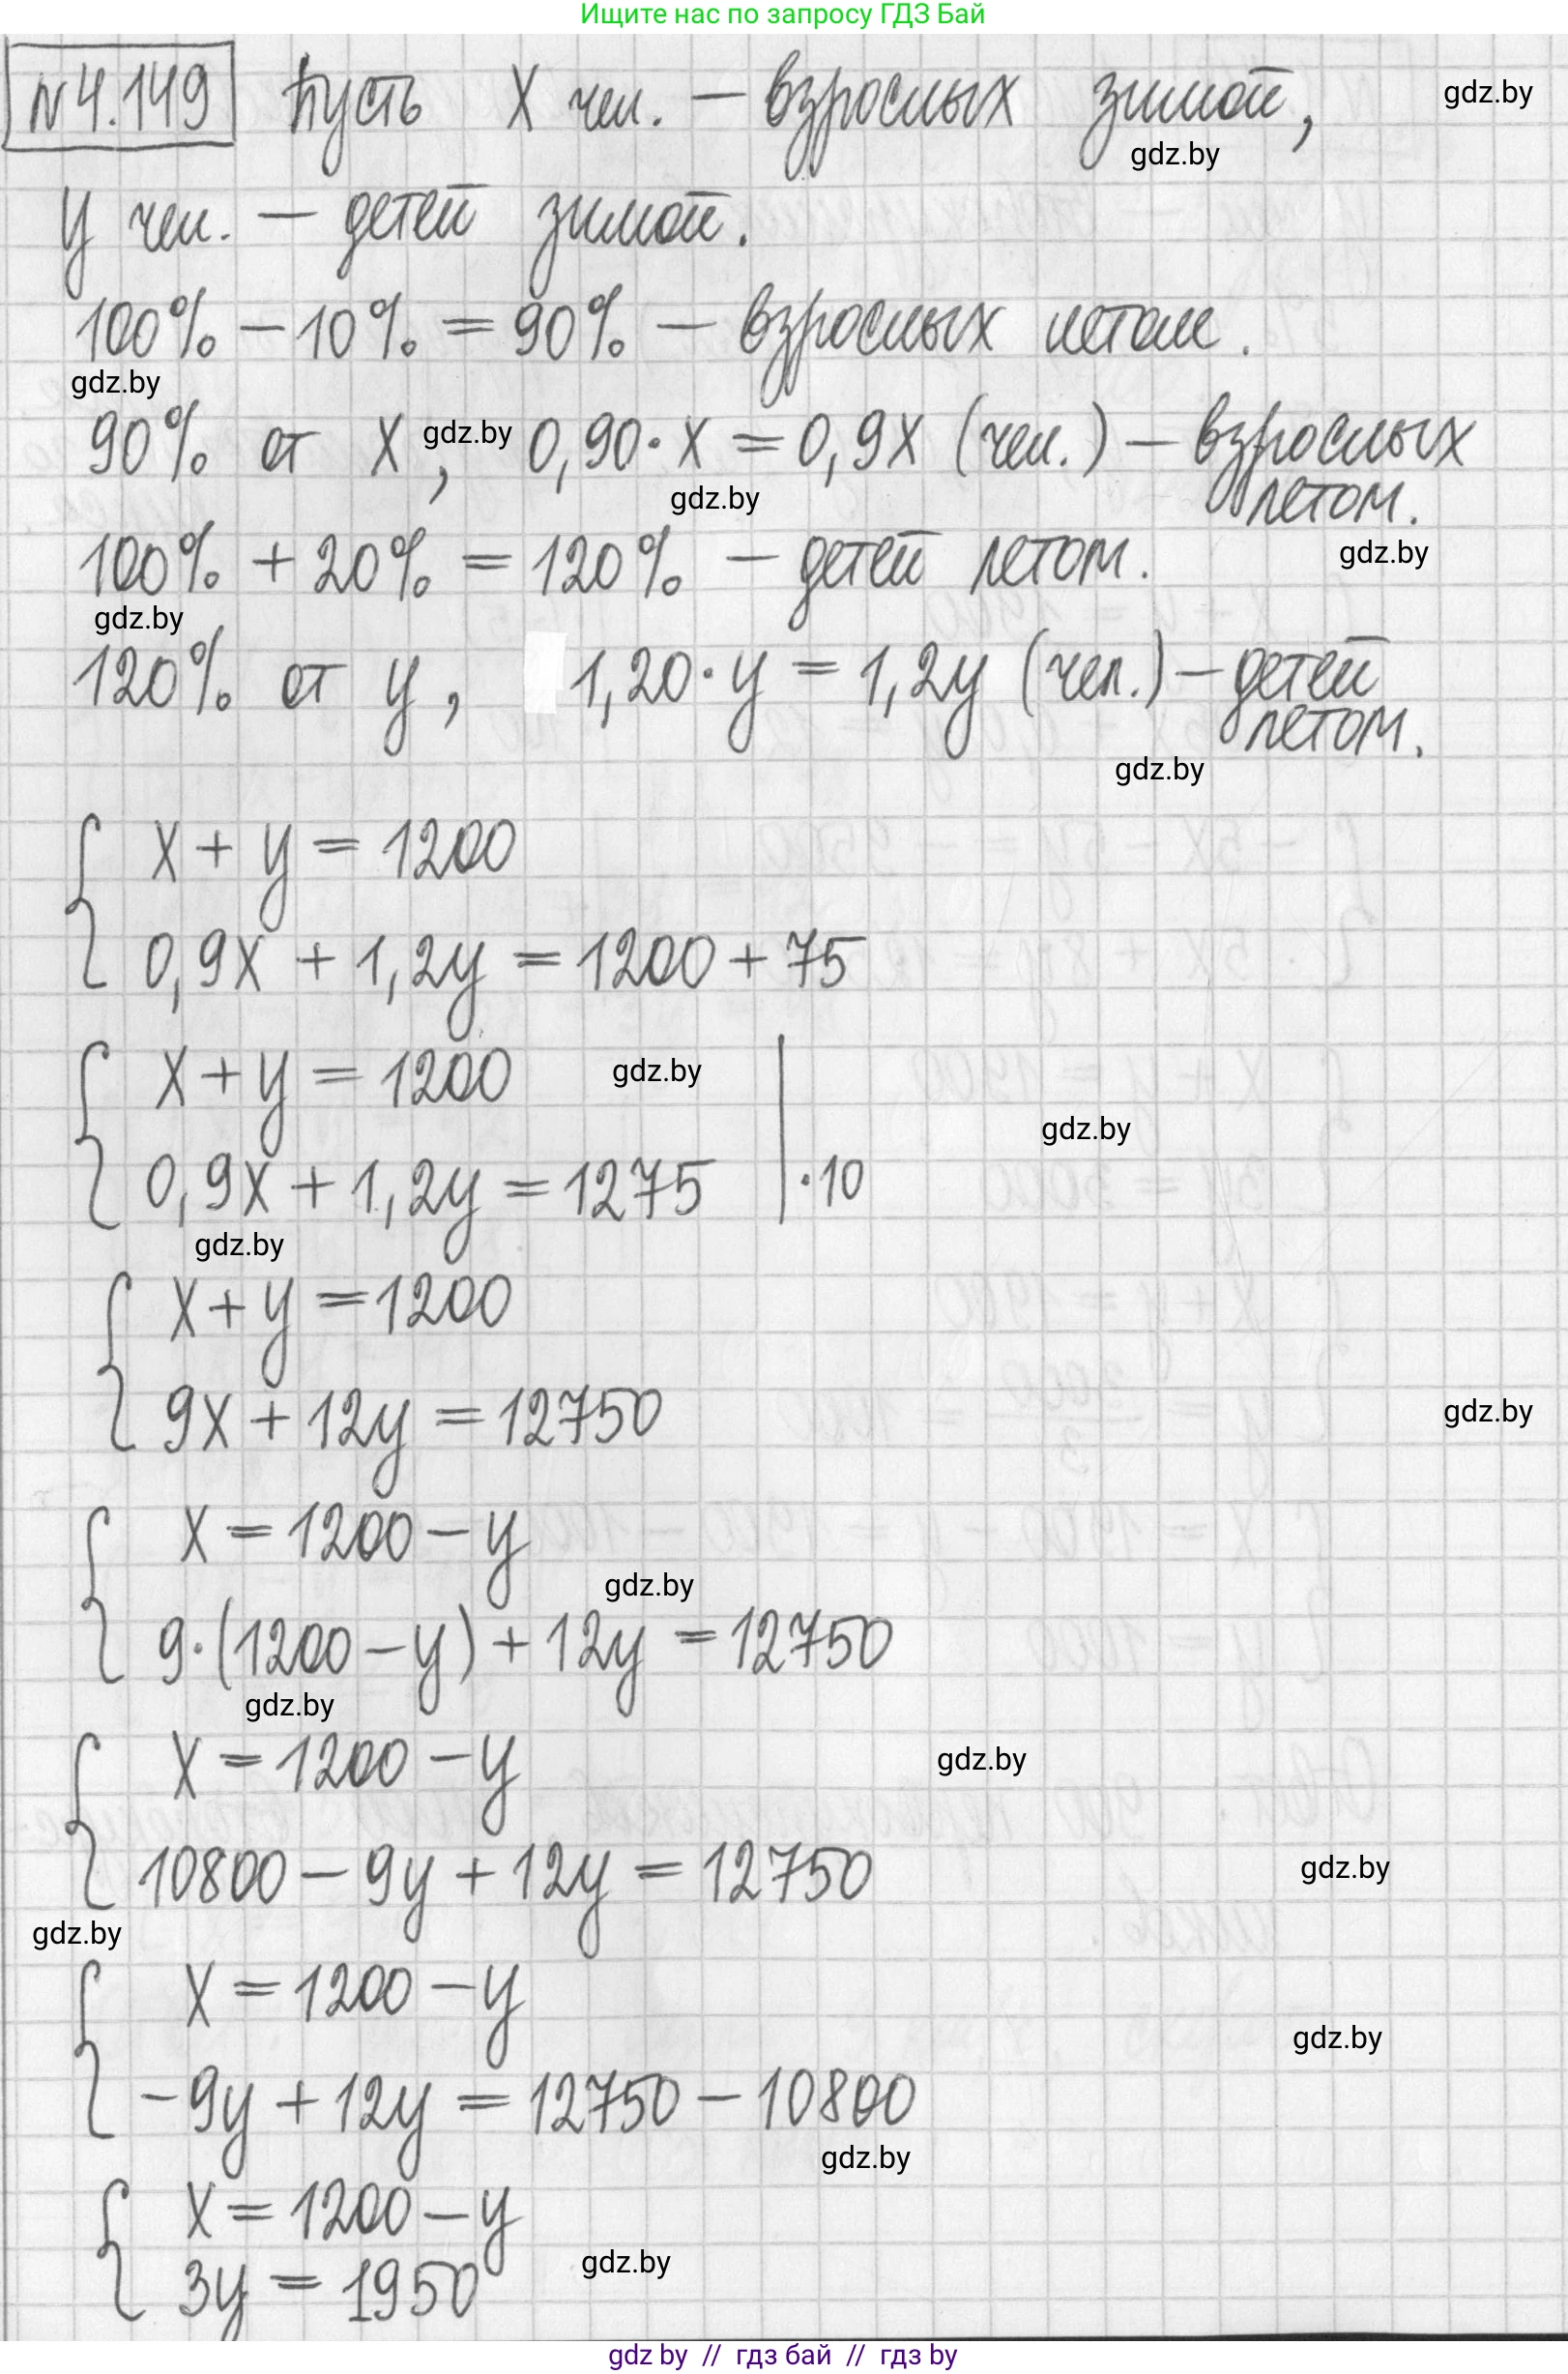 Ищите нас по запросу ГДЗ Бай
№4.149 Пусть x чел. – взрослых зимой,
gdz.by
gdz.by
y чел. – детей зимой.
100% – 10% = 90% – взрослых летом.
gdz.by
90% от x, 0,90·x = 0,9x (чел.) – взрослых
gdz.by
летом.
gdz.by
100% + 20% = 120% – детей летом.
gdz.by
gdz.by
120% от y, 1,20·y = 1,2y (чел.) – детей
летом.
gdz.by
{ x + y = 1200
0,9x + 1,2y = 1200 + 75
{ x + y = 1200
gdz.by
gdz.by
0,9x + 1,2y = 1275 | ·10
gdz.by
{ x + y = 1200
9x + 12y = 12750
gdz.by
{ x = 1200 – y
gdz.by
9·(1200 – y) + 12y = 12750
gdz.by
{ x = 1200 – y
gdz.by
10800 – 9y + 12y = 12750
gdz.by
gdz.by
{ x = 1200 – y
gdz.by
–9y + 12y = 12750 – 10800
gdz.by
{ x = 1200 – y
gdz.by
3y = 1950
gdz by // гдз бай // гдз by